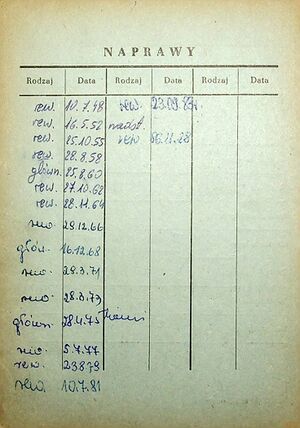 NAPRAWY
Rodzaj Data Rodzaj Data Rodzaj Data
rew. 10.7.48 rew. 23.09.
rew. 16.5.52
rew. 25.10.55 rew
rew. 28.8.58
główn. 25.8.60
rew. 27.10.62
rew. 28.11.64
rew. 29.12.66
główn. 16.12.68
rew. 29.3.71
rew. 28.3.73
główn. 28.4.75
rew. 5.7.77
rew. 23879
rew. 10.7.81